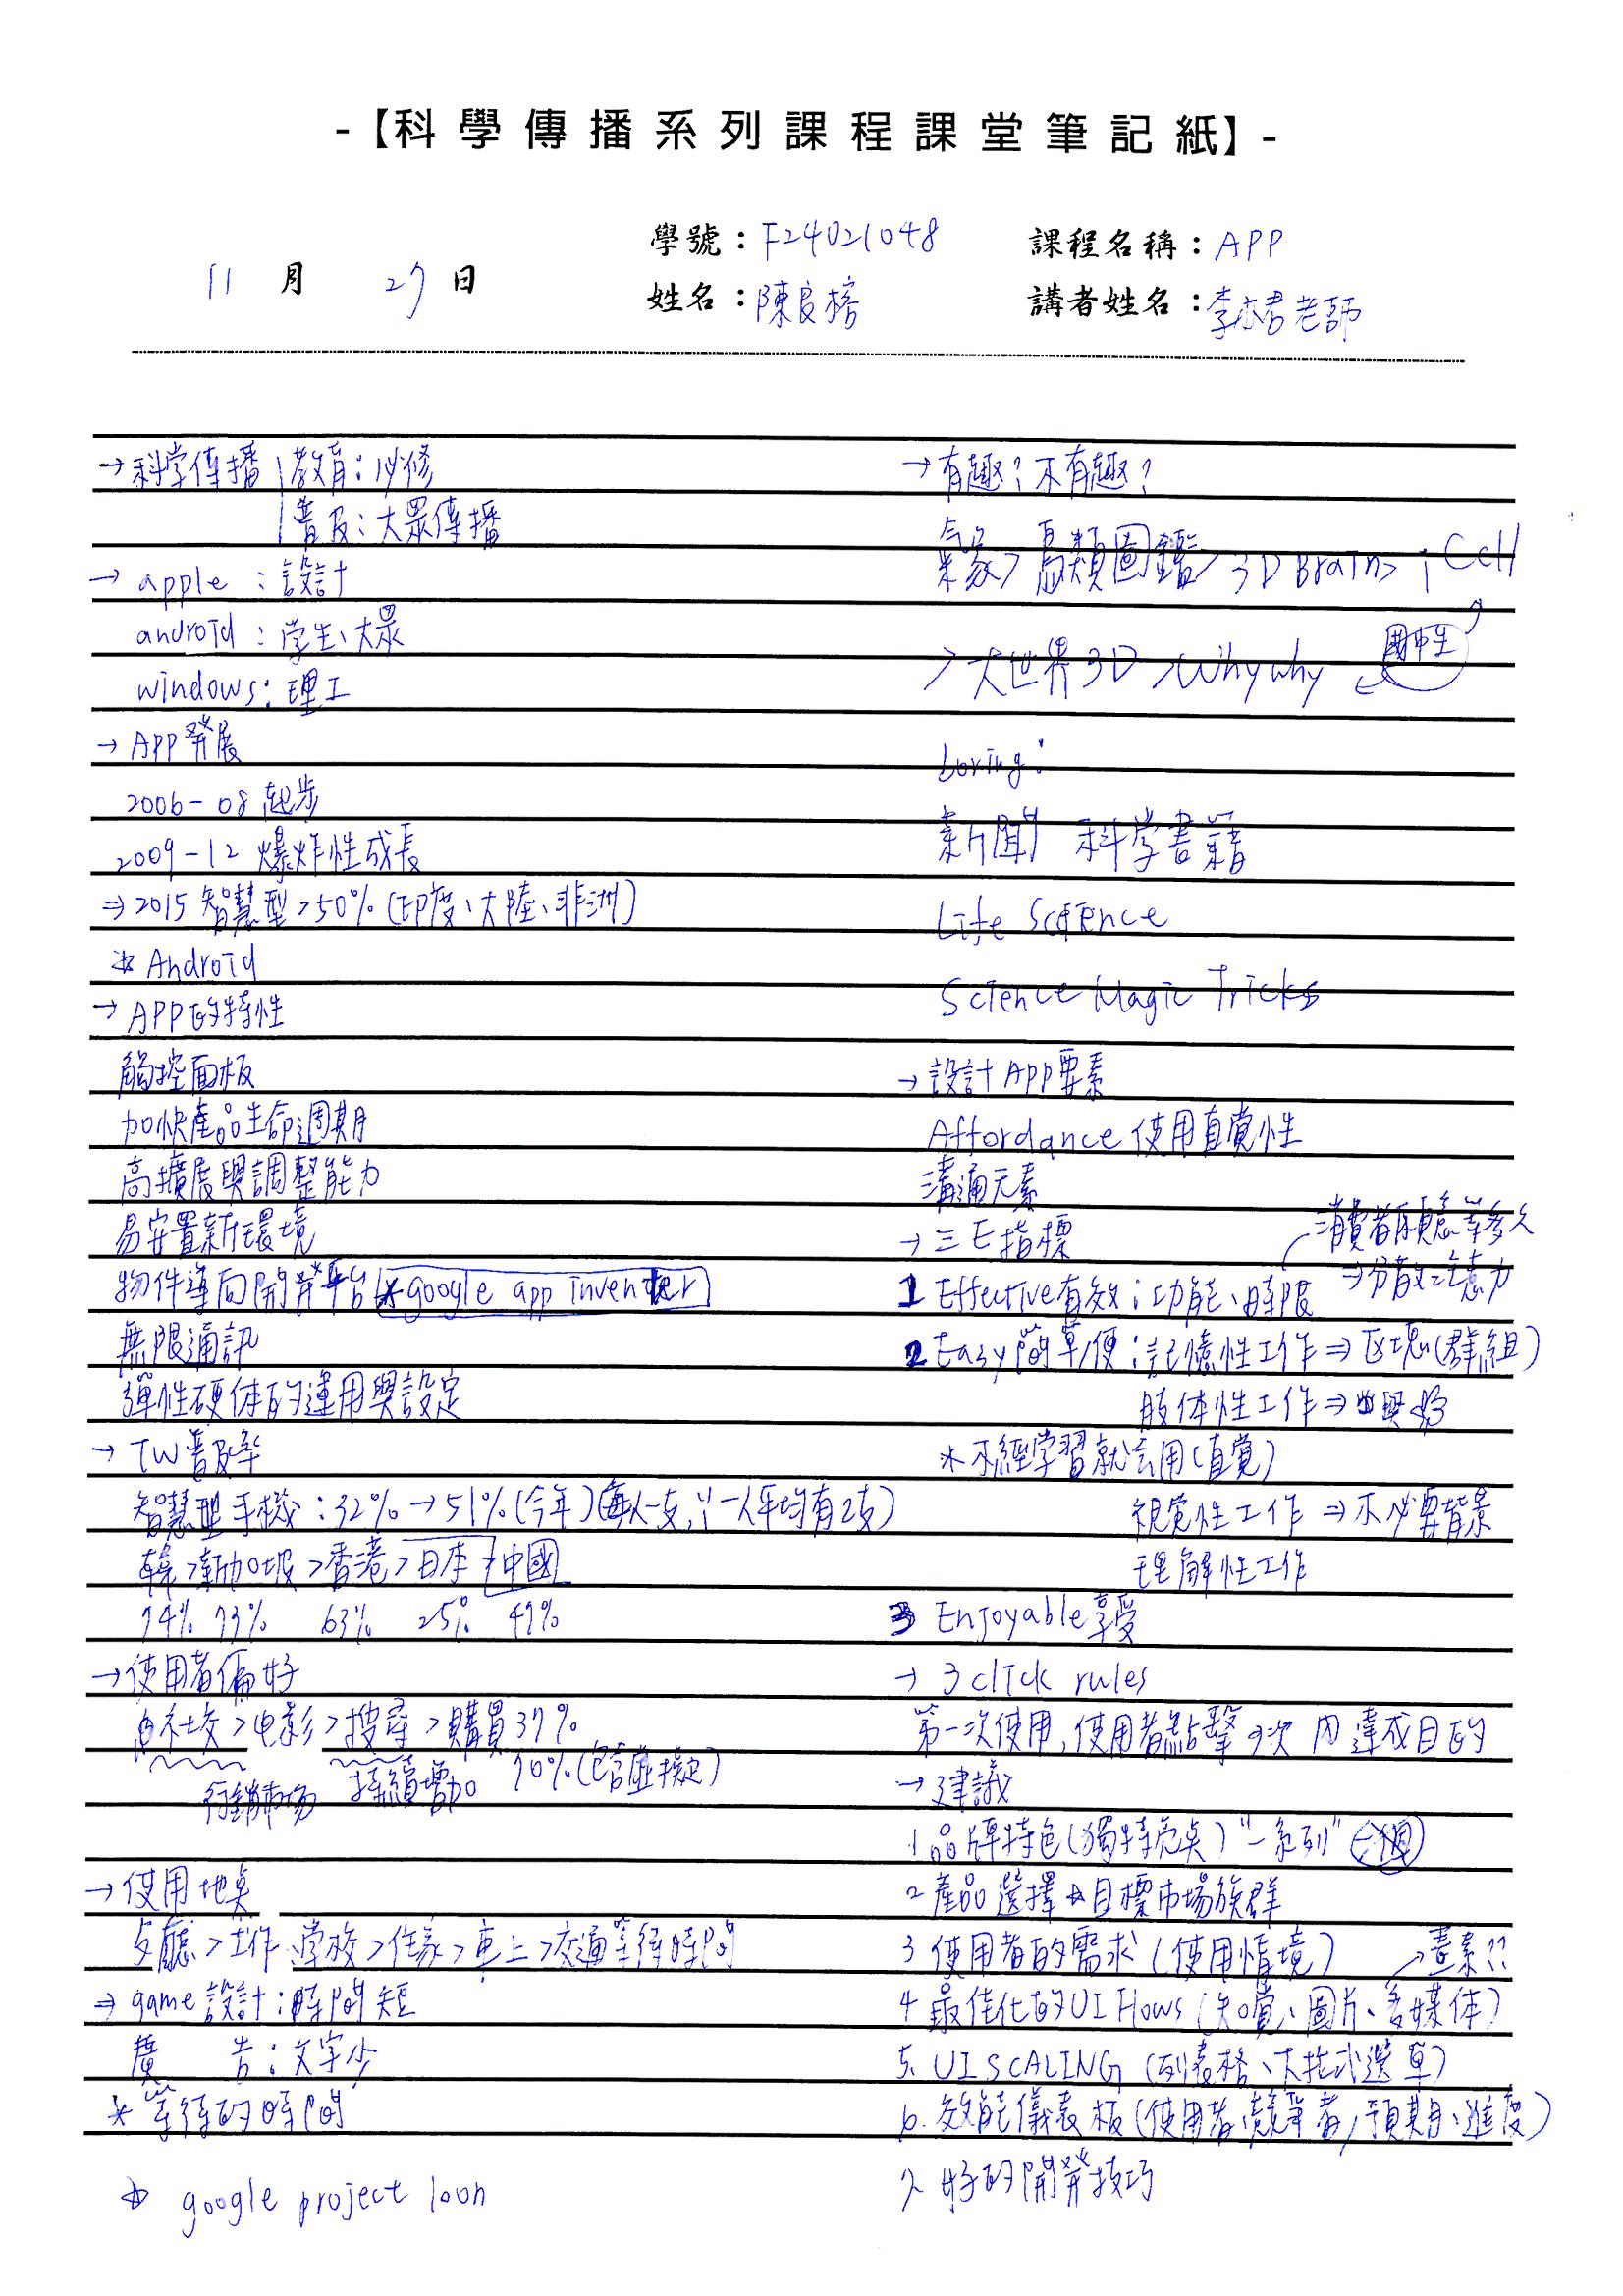 -【科學傳播系列課程課堂筆記紙】-
學號：F24021048 課程名稱：APP
11 月 27 日 姓名：陳良榕 講者姓名：李君老師
→科学傳播 教育：必修
普及：大眾傳播
→ apple：設計
android：学生、大眾
windows：理工
→ APP發展
2006-08 起步
2009-12 爆炸性成長
⇒2015 智慧型>50%(印度、大陸、非洲)
* Android
→ APP的特性
觸控面板
加快產品生命週期
高擴展與調整能力
易安置新環境
物件導向開發平台*google app inventer
無限通訊
彈性硬体的運用與設定
→ TW普及率
智慧型手機：32%→51%(今年)(每人一支,一人平均有2支)
韓>新加坡>香港>日本 中國
74% 73% 63% 25% 47%
→使用者偏好
社交>电影>搜尋>購買37%
行銷市场 持續增加 70%(包含虛擬)
→使用地桌
客廳>工作、学校>住家>車上>交通等待時間
⇒ game設計：時間短
廣告：文字少
* 等待的時間
☆ google project loon
→有趣？不有趣？
氣象>鳥類圖鑑>3D Brain>iCell
>大世界3D>Whywhy 國中生
boring：
新聞 科学書籍
Life Science
Science Magic Tricks
→設計App要素
Affordance 使用直覺性
溝通元素
→三E指標 消費者願意等多久
1 Effective有效：功能、時限 ⇒分散注意力
2 Easy簡單/便：記憶性工作⇒区塊(群組)
肢体性工作⇒
*不經学習就会用(直覺)
視覺性工作⇒不必要背景
理解性工作
3 Enjoyable享受
→ 3 click rules
第一次使用,使用者點擊3次內達成目的
→建議
1 品牌特色(獨特亮桌)"一系列"
2 產品選擇 目標市場族群
3 使用者的需求(使用情境) →畫素??
4 最佳化的UI Flows(知覺、圖片、多媒体)
5. UI SCALING(列表格、大拉式選單)
6. 效能儀表板(使用者、競爭者,預期、進度)
7. 好的開發技巧